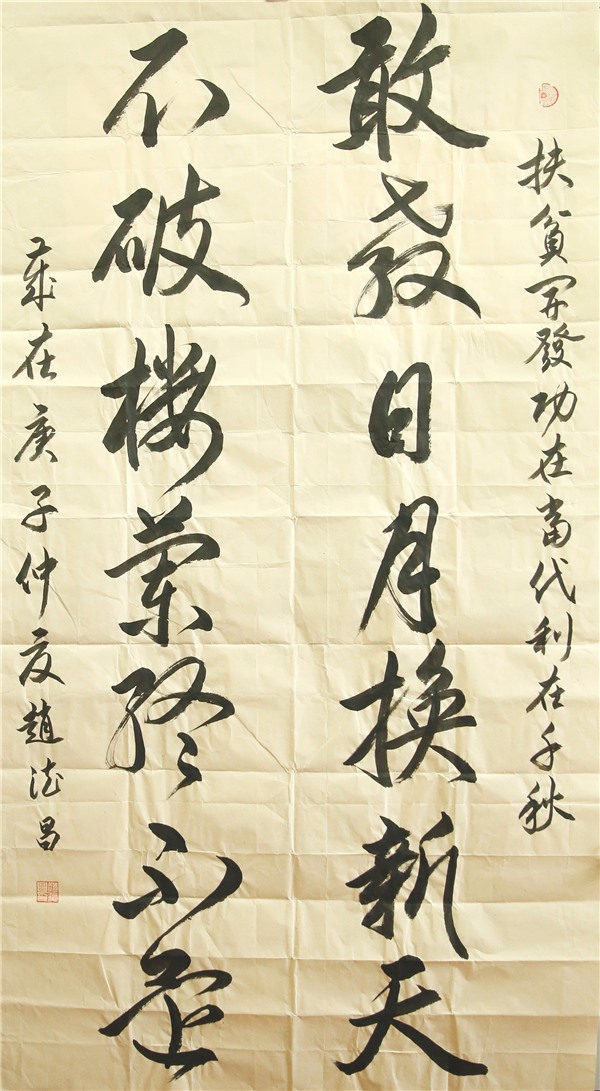 扶貧開發功在當代利在千秋
敢教日月換新天
不破樓蘭終不還
歲在庚子仲夏趙德昌